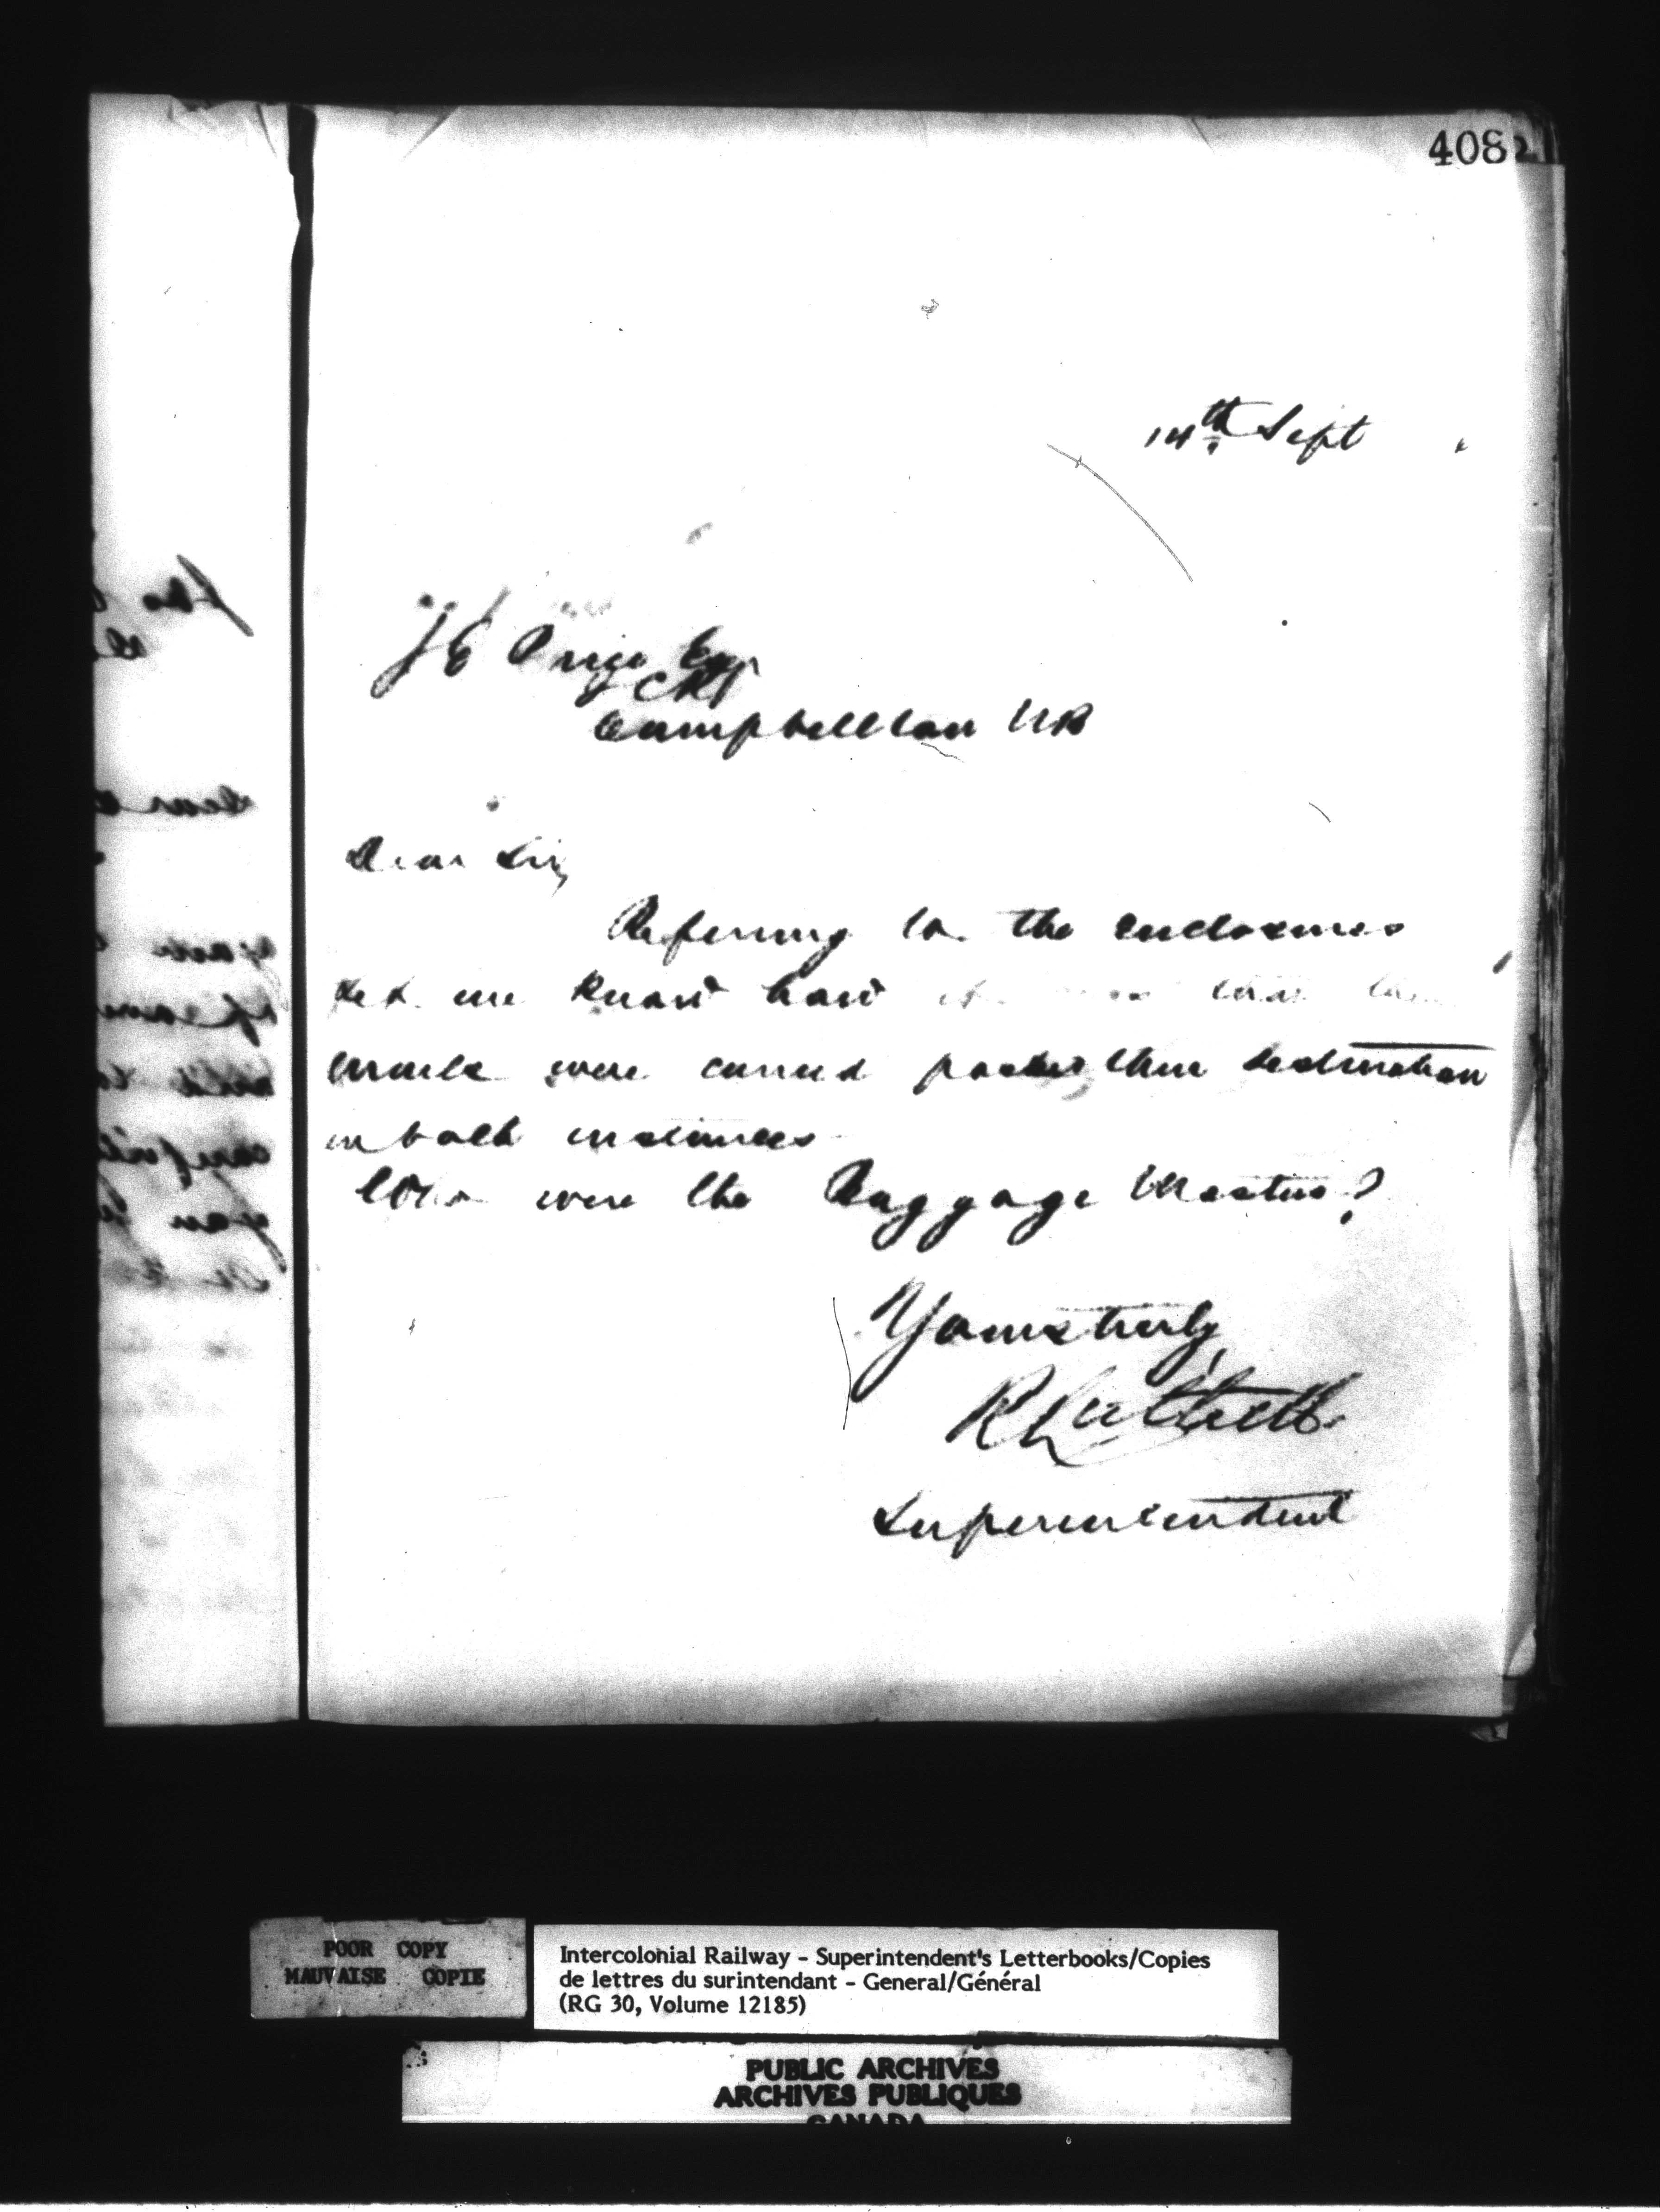 408
14th Sept
J E Price Esqr
Campbellton NB
Dear Sir,
Referring to the enclosures
let me know how it was that the
were carried past their destination
in both instances
Who were the Baggage Masters?
Yours truly
R Luttrell
Superintendent
POOR COPY
MAUVAISE COPIE
Intercolonial Railway - Superintendent's Letterbooks/Copies
de lettres du surintendant - General/Général
(RG 30, Volume 12185)
PUBLIC ARCHIVES
ARCHIVES PUBLIQUES
CANADA